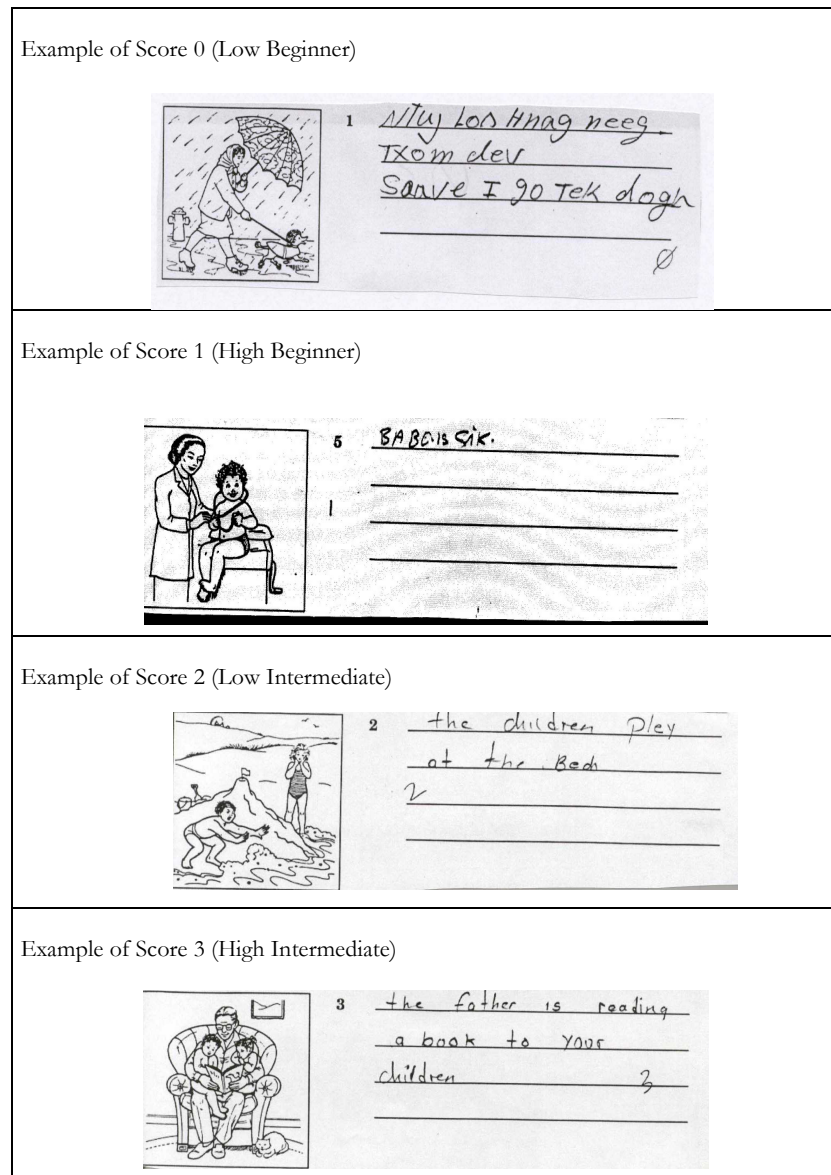 Example of Score 0 (Low Beginner)
1 Ntuj Los Hnag neeg
Txom dev
Sarve I go Tek dogh
0
Example of Score 1 (High Beginner)
5 BABE IS SIK.
1
Example of Score 2 (Low Intermediate)
2 the children pley
at the Bech
2
Example of Score 3 (High Intermediate)
3 the father is reading
a book to your
children 3